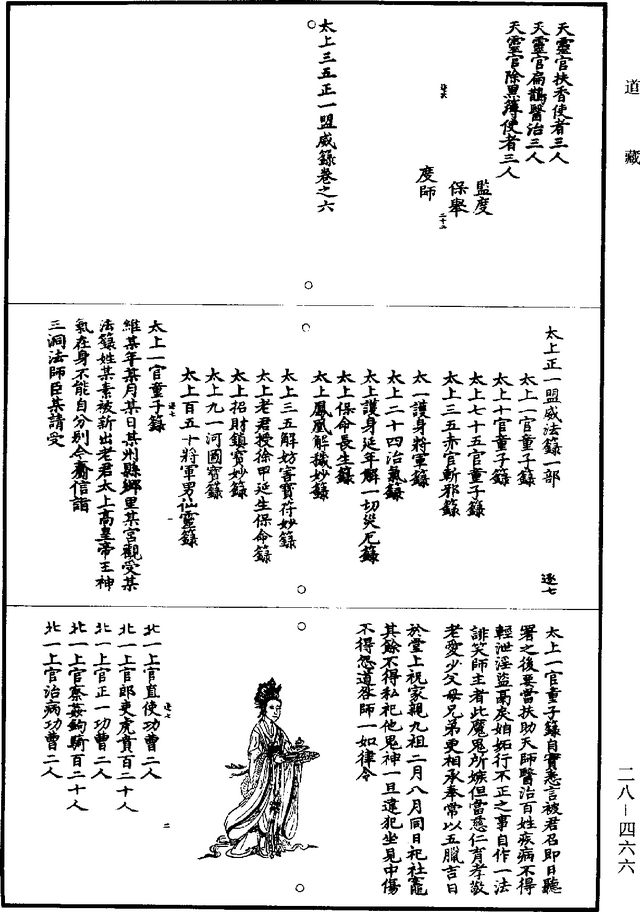 道藏
天靈官扶香使者三人
天靈官扁鵲醫治三人
天靈官除黑簿使者三人
監度
保舉
度師
太上三五正一盟威籙卷之六
太上正一盟威法籙一部
逐七
太上一官童子籙
太上十官童子籙
太上七十五官童子籙
太上三五赤官斬邪籙
太一護身將軍籙
太上二十四治氣籙
太上護身延年解一切災厄籙
太上保命長生籙
太上鳳凰解穢妙籙
太上三五解妨害寶符妙籙
太上老君授徐甲延生保命籙
太上招財鎮寶妙籙
太上九一河圖寶籙
太上百五十將軍男仙靈籙
太上一官童子籙
維某年某月某日某州縣鄉里某宮觀受某
法籙姓某素被新出老君太上高皇帝王神
氣在身不能自分別今齎信詣
三洞法師臣某請受
太上一官童子籙自實愨言被君召即日聽
署之後要當扶助天師醫治百姓疾病不得
輕泄淫盜鬲戾妬妬行不正之事自作一法
誹笑師主者此魔鬼所嫉但當慈仁育孝敬
老愛少父母兄弟更相承奉常以五臘吉日
於堂上祀家親九祖二月八月同日祀社竈
其餘不得私祀他鬼神一旦違犯坐見中傷
不得怨道咎師一如律令
北一上官直使功曹二人
北一上官郎吏虎賁百二十人
北一上官正一功曹二人
北一上官察姦鉤騎百二十人
北一上官治病功曹二人
二八－四六六